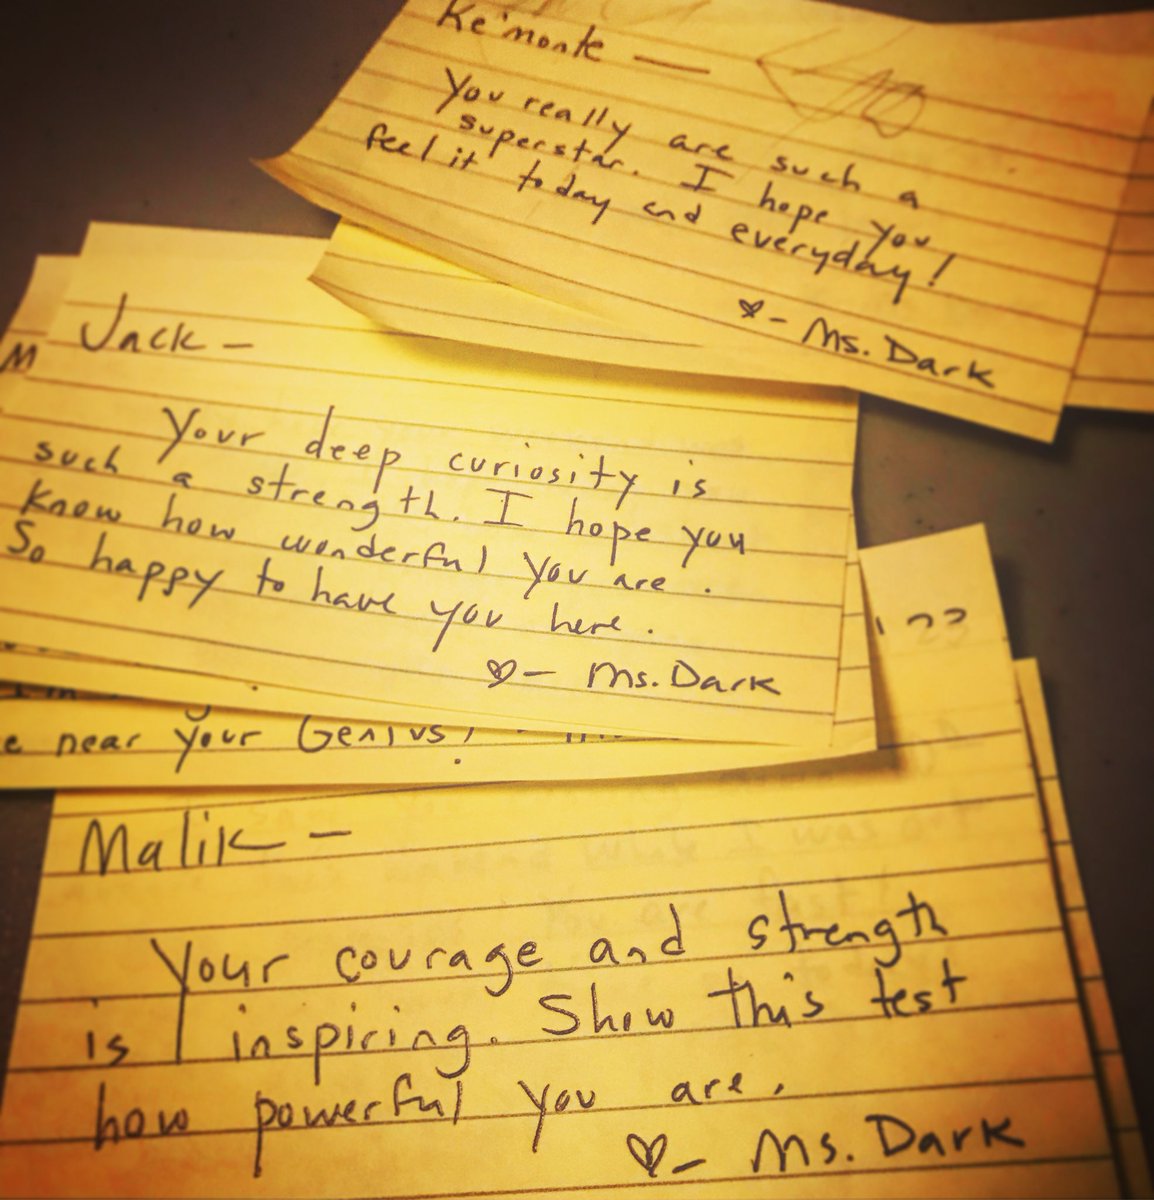 Ke'monte —
You really are such a
superstar. I hope you
feel it today and everyday!
♡ - Ms. Dark
Jack -
M
Your deep curiosity is
such a strength. I hope you
know how wonderful you are.
So happy to have you here.
♡ - Ms. Dark
e near your Genius!
Malik -
Your courage and strength
is inspiring. Show this test
how powerful you are.
♡ - Ms. Dark